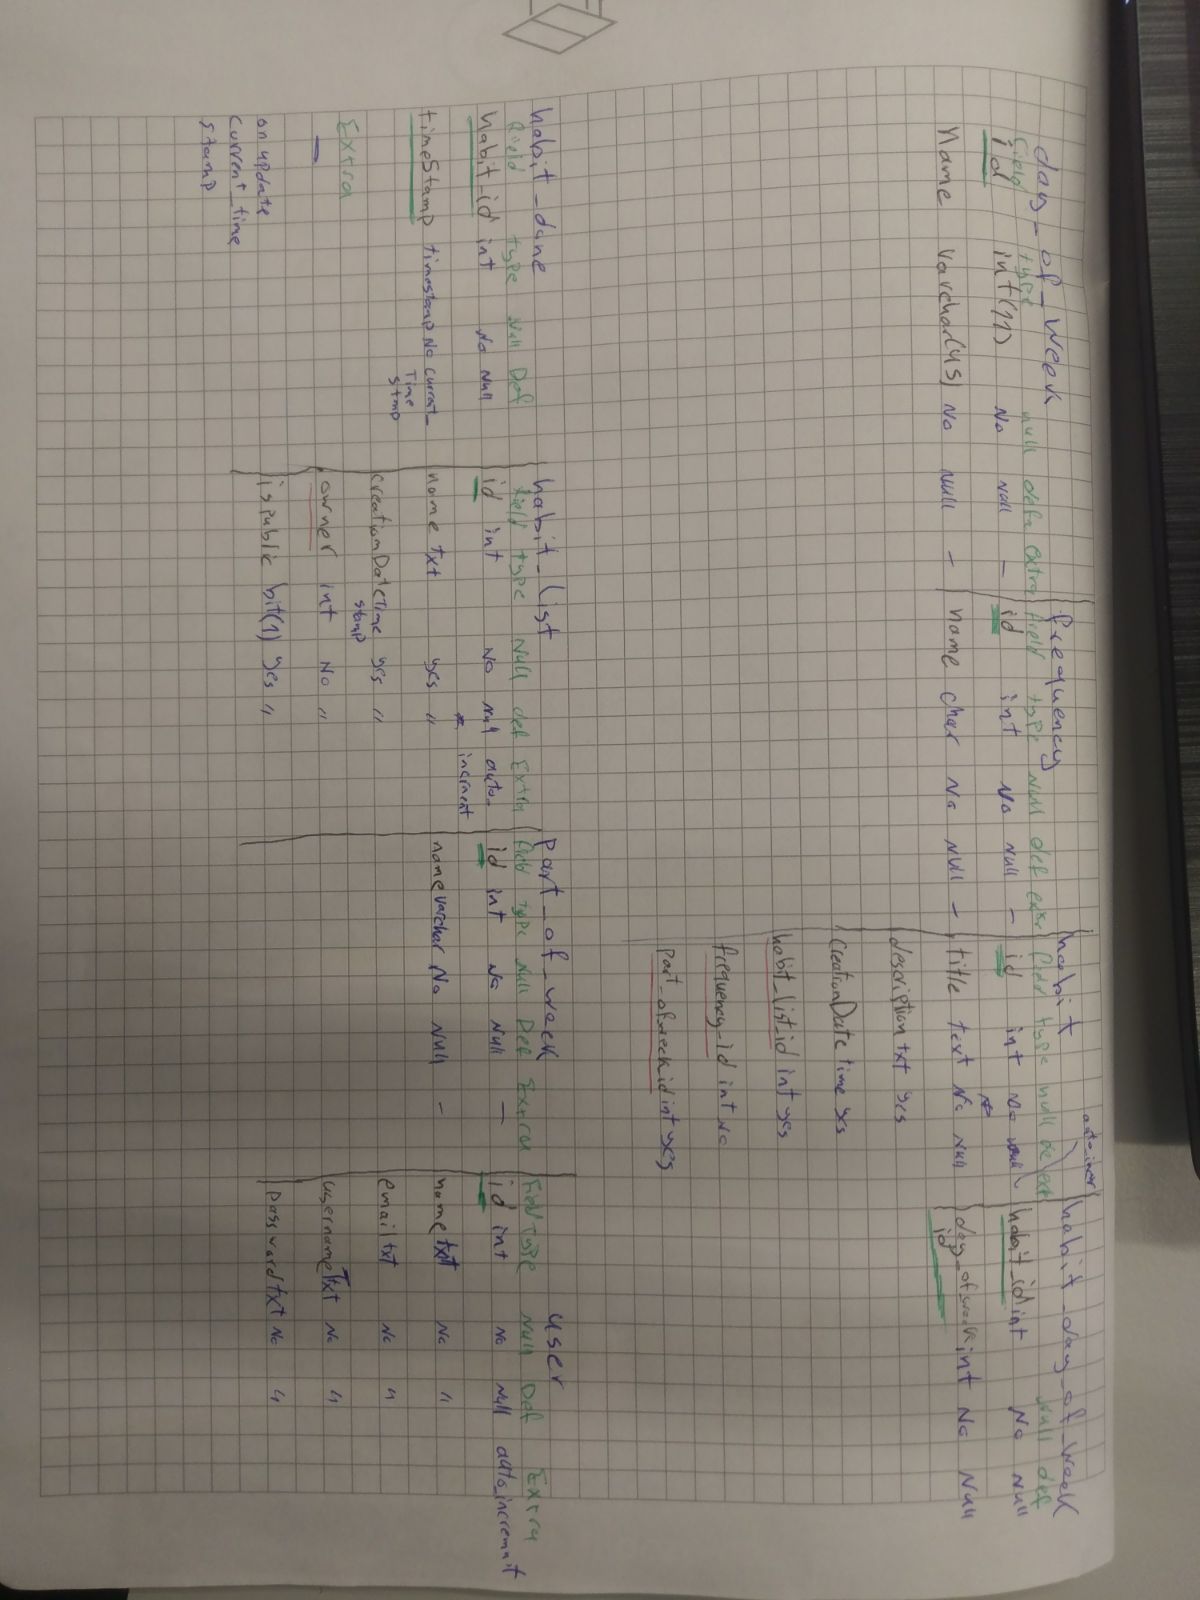 day_of_week
field type null defa extra
id int(11) No null -
Name varchar(45) No null -
frequency
field type Null def extr
id int No null -
name char No null -
habit
field type null de ext
auto_incr
id int No null
title text No null
description txt yes
creationDate time yes
habit_listid int yes
frequency_id int No
part_ofweekid int yes
habit_day_of_week
Null def
habit_id int No Null
day_ofweek int No Null
id
habit_done
field type Null Def
habit_id int No Null
timeStamp timestamp No current_
Time
stmp
Extra
-
on update
current_time
stamp
habit_list
field type Null def Extra
id int No null auto_
increment
name txt yes "
creationDate time yes "
stamp
owner int No "
ispublic bit(1) yes "
part_of_week
field type Null Def Extra
id int No Null -
name varchar No Null -
user
Field type Null Def Extra
id int No Null auto_increment
name txt No "
email txt No "
username Txt No "
password txt No "